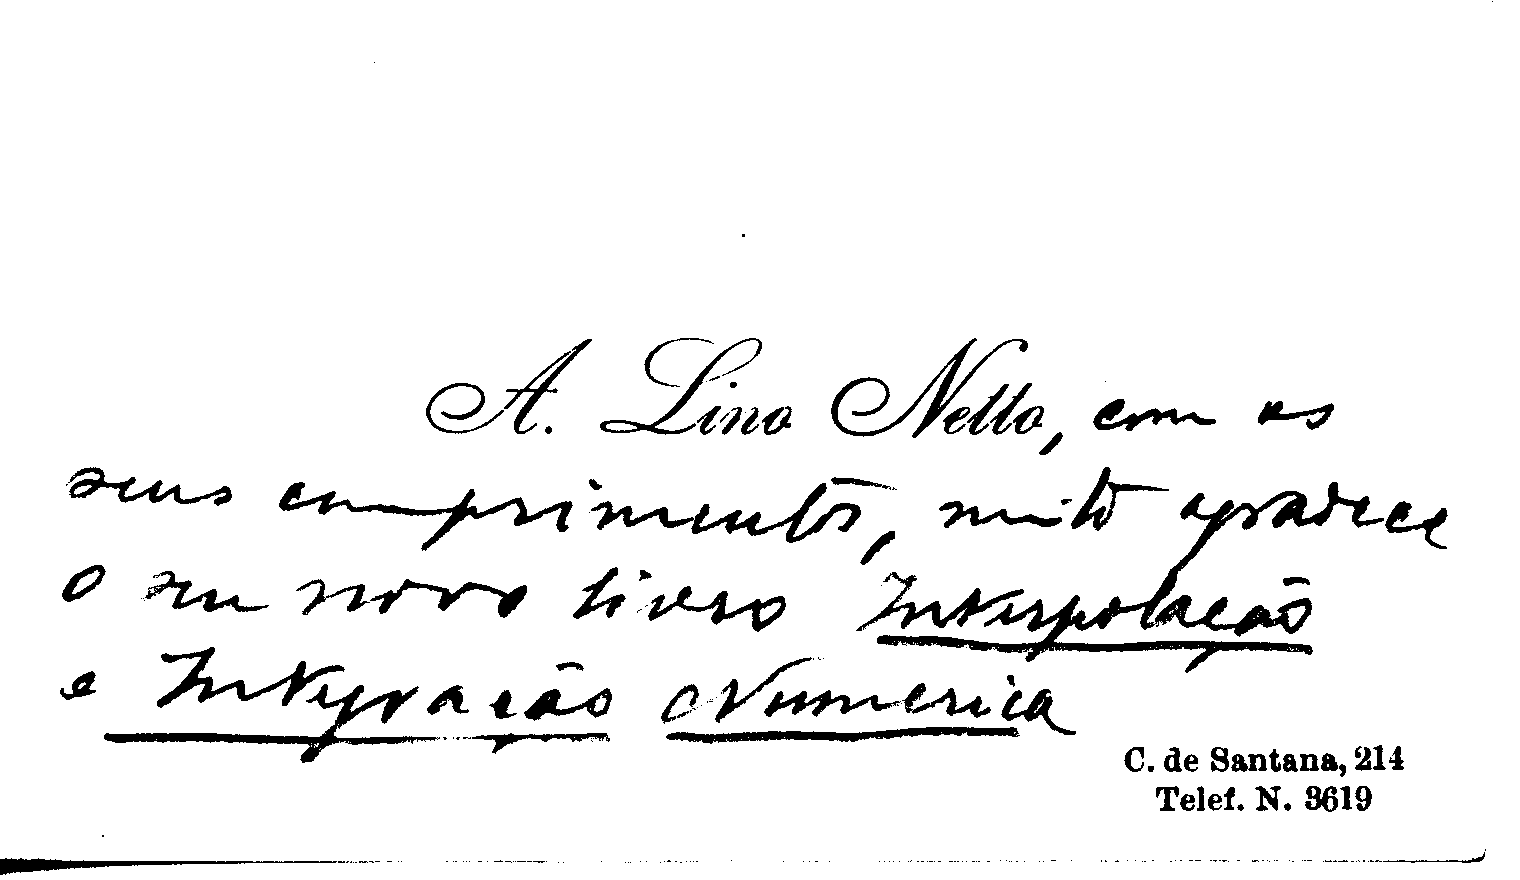 A. Lino Netto, com os
seus cumprimentos, muito agradece
o seu novo livro Interpolação
e Integração Numerica
C. de Santana, 214
Telef. N. 3619